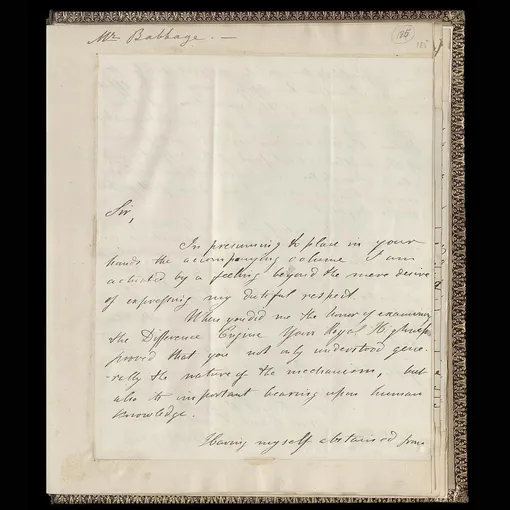 Mr Babbage. —
185
Sir,
In presuming to place in your
hands the accompanying volume I am
actuated by a feeling beyond the mere desire
of expressing my dutiful respect.
When you did me the honor of examining
the Difference Engine Your Royal Highness
proved that you not only understood gene-
-rally the nature of the mechanism, but
also its important bearing upon human
knowledge.
Having myself abstained from